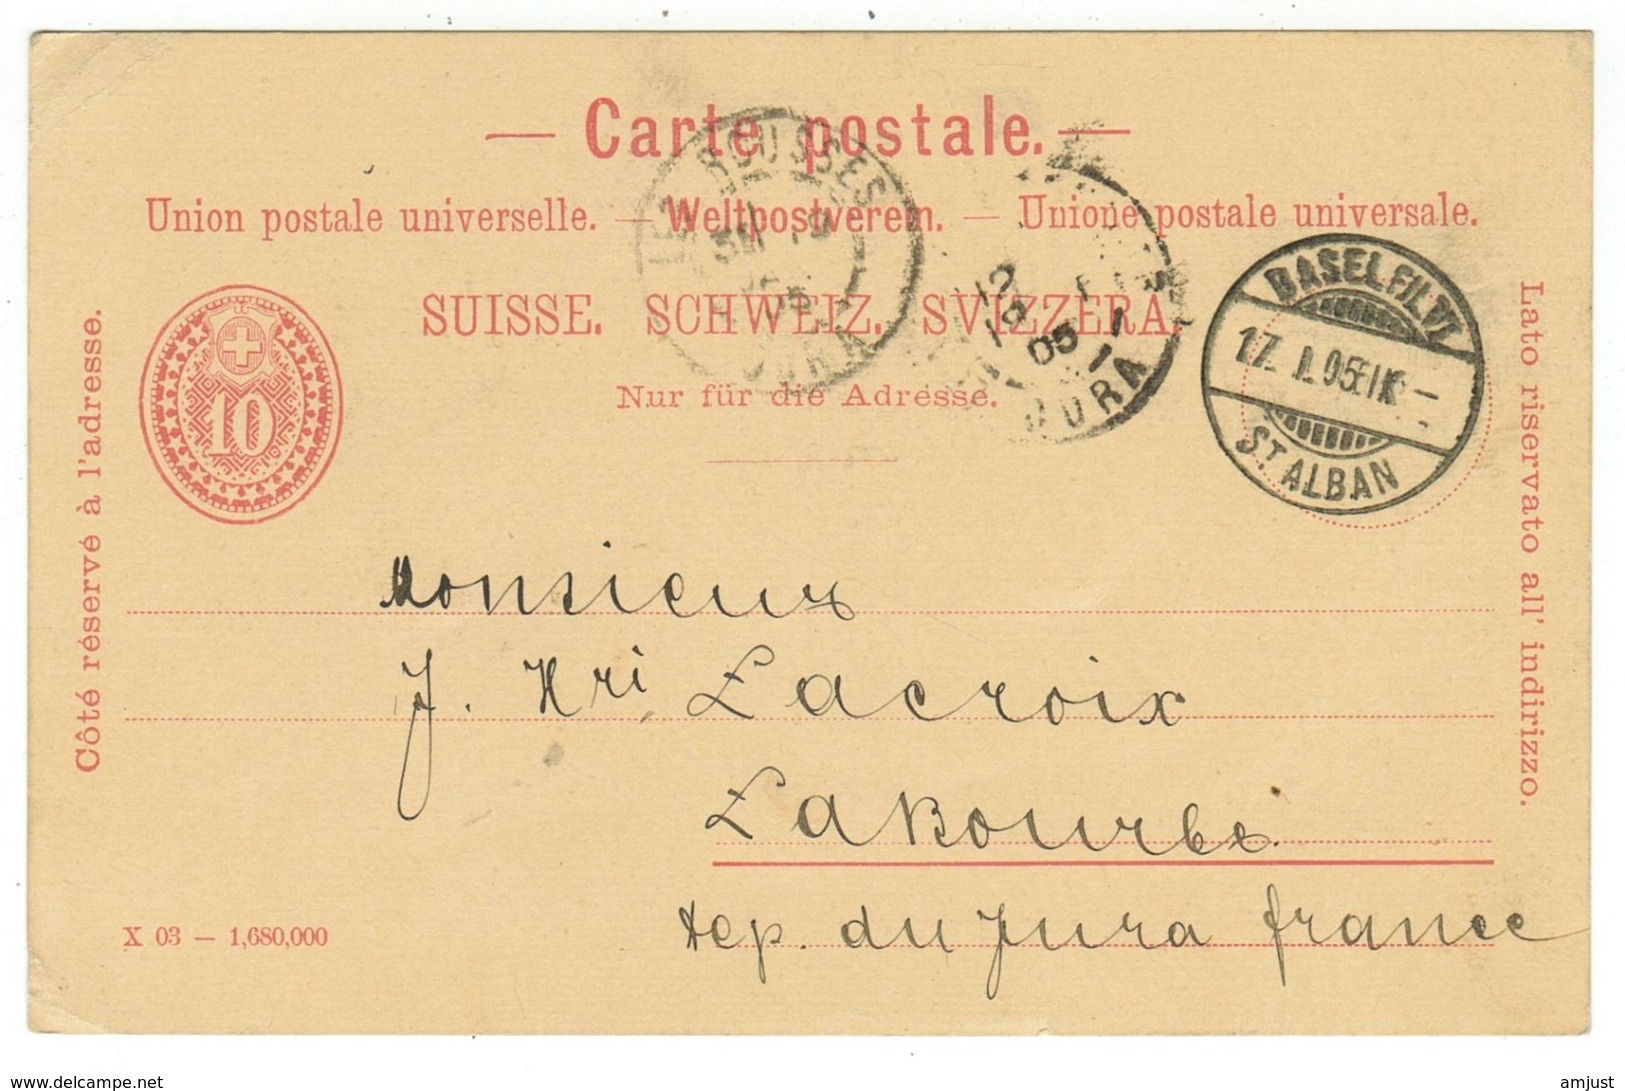 — Carte postale. —
Union postale universelle. — Weltpostverein. — Unione postale universale.
SUISSE. SCHWEIZ. SVIZZERA.
Nur für die Adresse.
Côté réservé à l'adresse.
Lato riservato all' indirizzo.
10
LES ROUSSES
JURA
05
JURA
BASEL.FIL.VI
17. I. 05
ST ALBAN
Monsieur
J. Hri Lacroix
Dep. du Jura france
X 03 — 1,680,000
www.delcampe.net
amjust